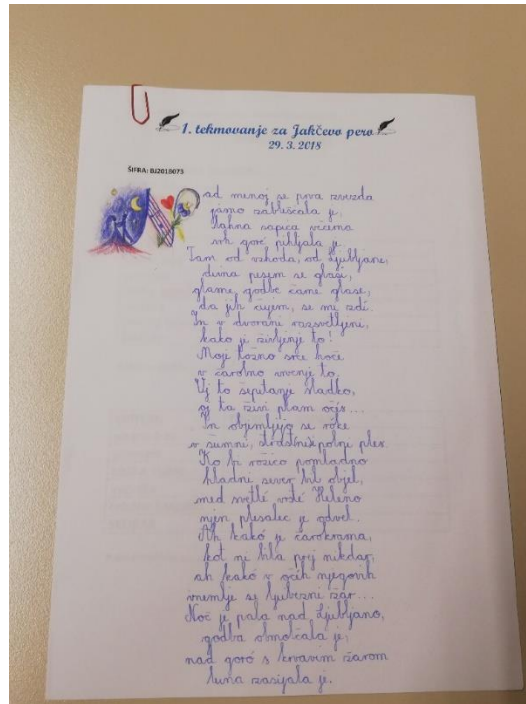 1. tekmovanje za Jakčevo pero
29. 3. 2018
ŠIFRA: BJ2018073
Nad menoj se prva zvezda
jasno zableščala je,
lahna sapica večerna
vrh goré pihljala je.
Tam od vzhoda, od Ljubljane,
divna pesem se glasi,
glasne godbe čarne glase,
da jih čujem, se mi zdi.
In v dvorani razsvetljeni,
kako je življenje to!
Moje tožno srce hoče
v čarobno vrvenje to.
Oj to šeputanje sladko,
oj ta živi plam očij...
In objemljejo se roke
v šumni, strastnih polni ples.
Ko bi rožico pomladno
hladni sever bil objel,
med svetle vrste Heleno
njen plesalec je odvel.
Ah kakó je čarokrasna,
kot ni bila prej nikdar,
ah kakó v očih njegovih
vnemlje se ljubezni žar...
Noč je pala nad Ljubljano,
godba obmolčala je;
nad goró s krvavim žarom
luna zasijala je.